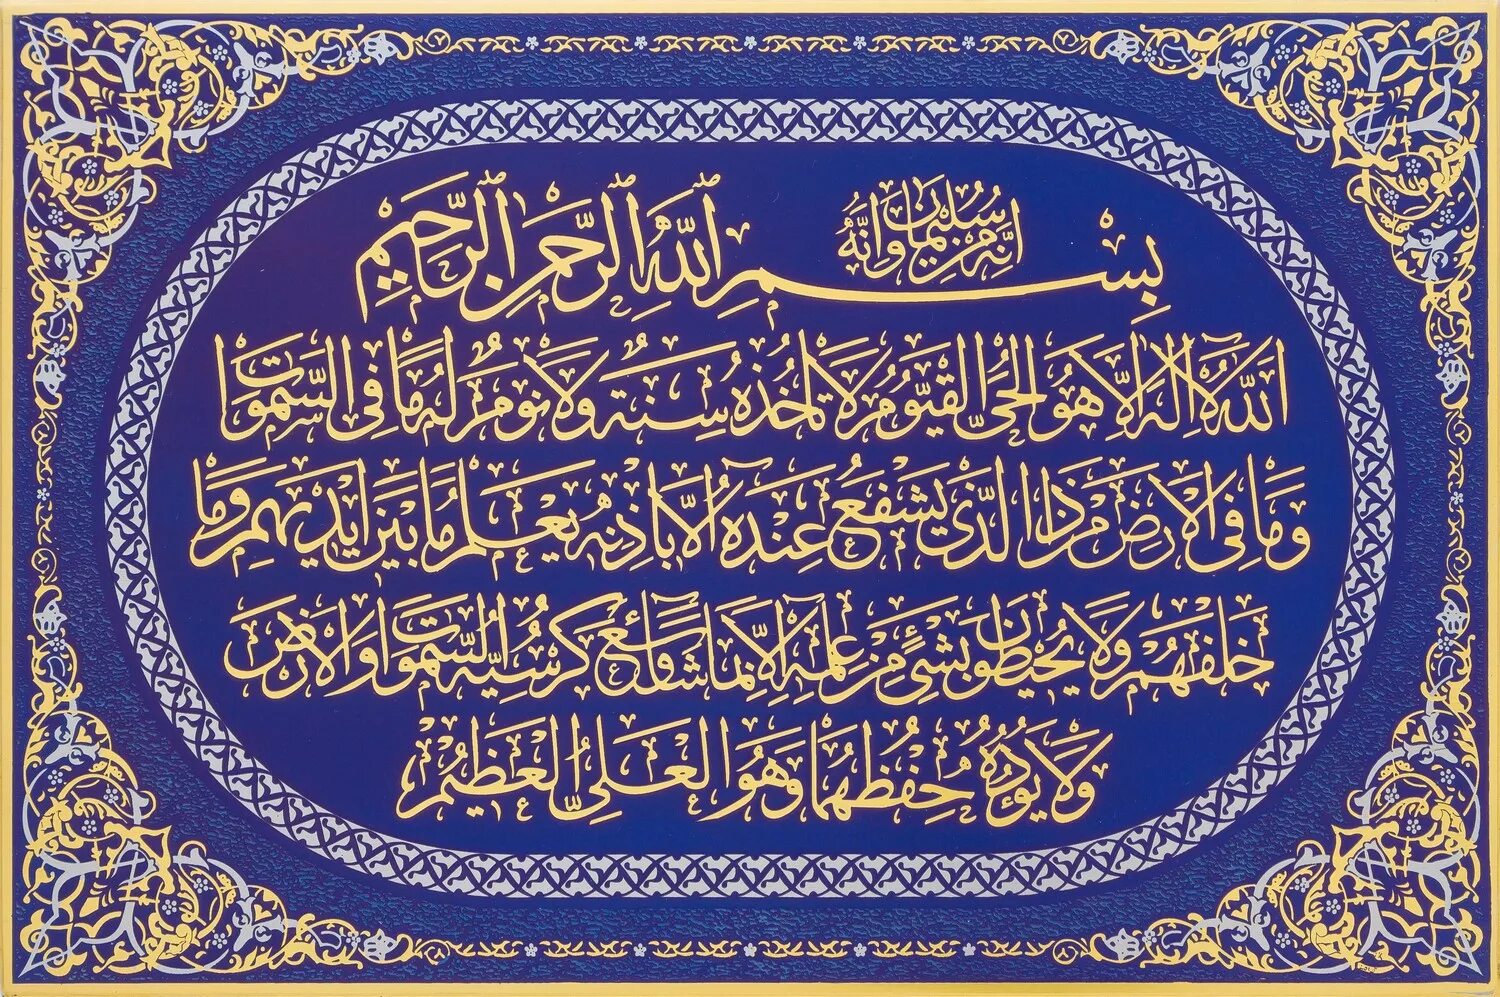 إنه من سليمان وإنه
بسم الله الرحمن الرحيم
الله لا إله إلا هو الحي القيوم لا تأخذه سنة ولا نوم له ما في السموات
وما في الأرض من ذا الذي يشفع عنده إلا بإذنه يعلم ما بين أيديهم وما
خلفهم ولا يحيطون بشيء من علمه إلا بما شاء وسع كرسيه السموات والأرض
ولا يؤده حفظهما وهو العلي العظيم